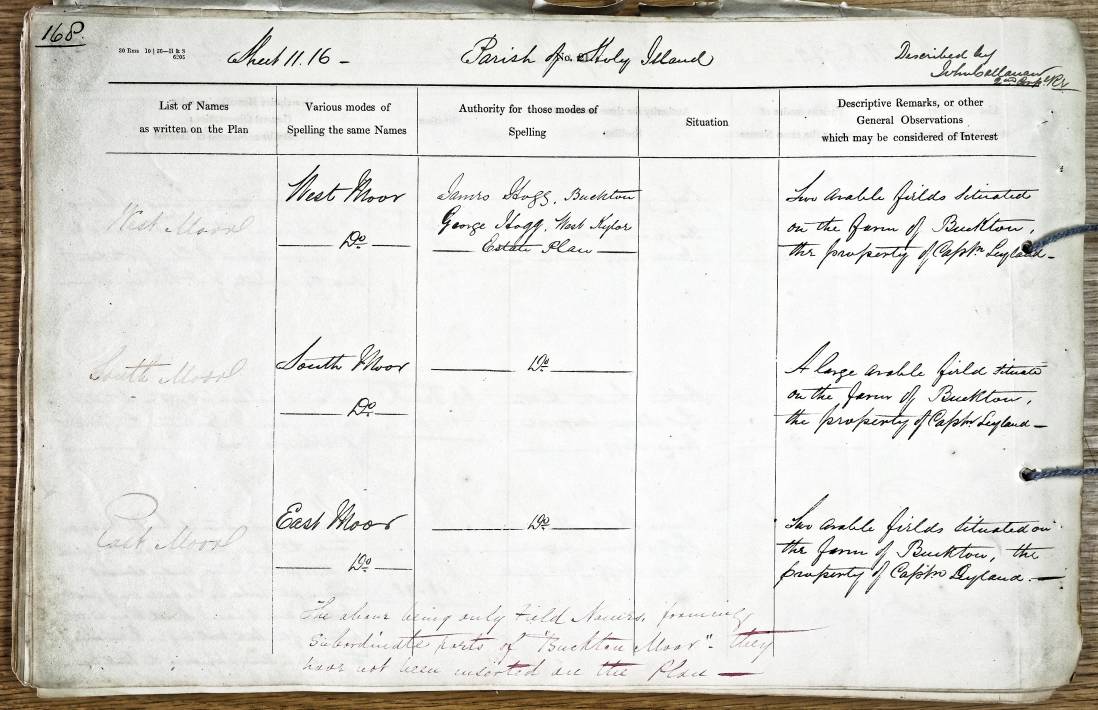 168.
Sheet 11.16 -
Parish of Holy Island
No.
Described by
John Callanan
List of Names
as written on the Plan
Various modes of
Spelling the same Names
Authority for those modes of
Spelling
Situation
Descriptive Remarks, or other
General Observations
which may be considered of Interest
West Moor
West Moor
Do
James Hogg, Buckton
George Hogg, West Kyloe
Estate Plan
Two arable fields situated
on the farm of Buckton,
the property of Captn. Leyland -
South Moor
South Moor
Do
Do
A large arable field situate
on the farm of Buckton,
the property of Captn Leyland -
East Moor
East Moor
Do
Do
Two arable fields situated on
the farm of Buckton, the
property of Captn Leyland. -
The above being only Field Names, forming
subordinate parts of "Buckton Moor". they
have not been inserted on the Plan -